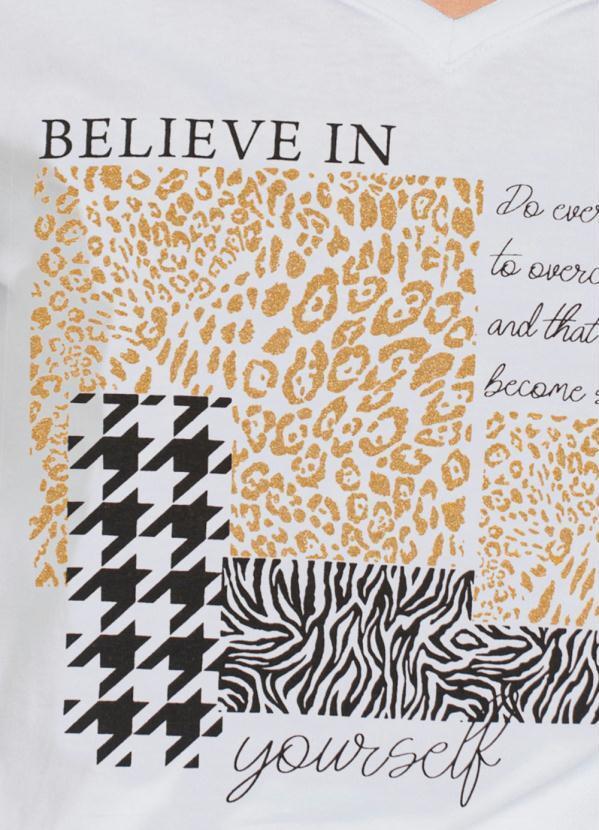 BELIEVE IN
Do ever
to overc
and that
become
yourself